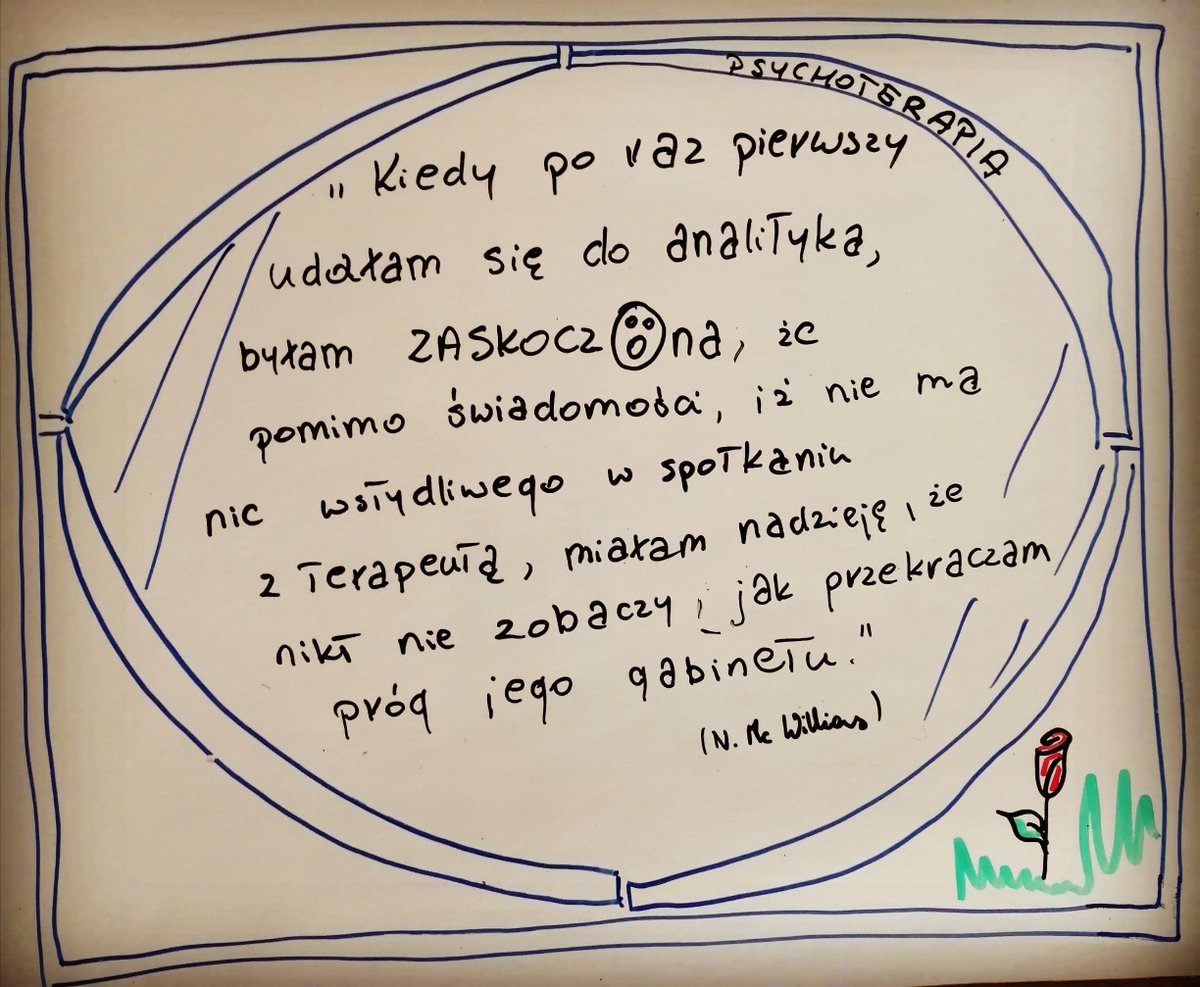 PSYCHOTERAPIA
„Kiedy po raz pierwszy
udałam się do analityka,
byłam ZASKOCZONA, że
pomimo świadomości, iż nie ma
nic wstydliwego w spotkaniu
z terapeutą, miałam nadzieję, że
nikt nie zobaczy, jak przekraczam
próg jego gabinetu."
(N. Mc Williams)